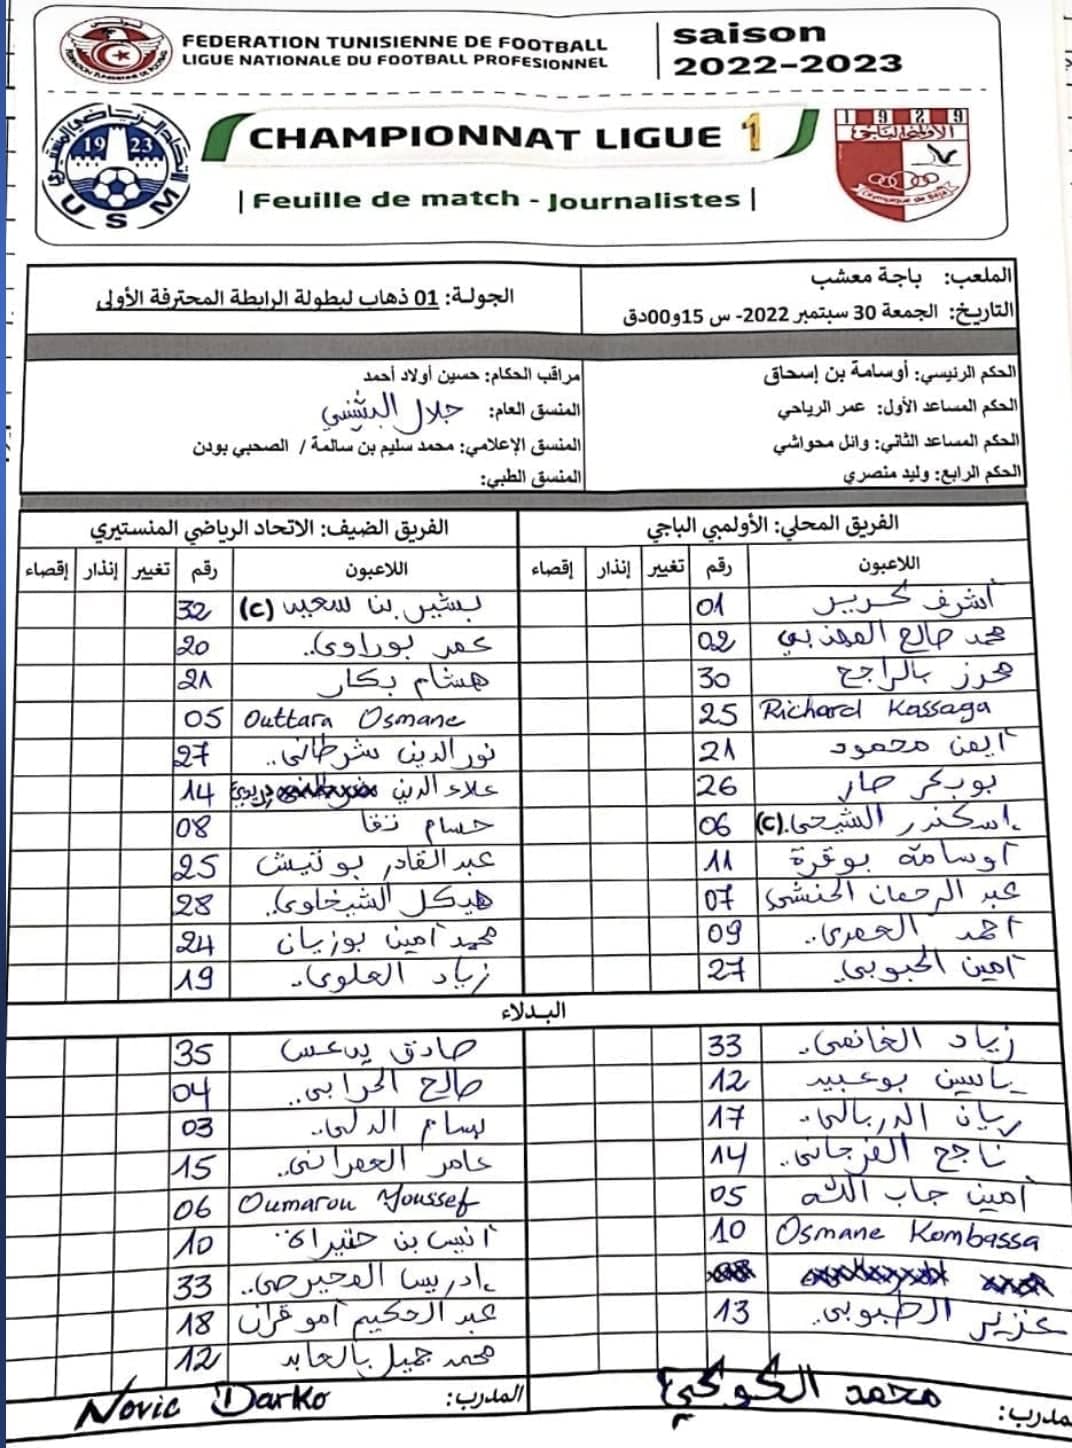 FEDERATION TUNISIENNE DE FOOTBALL
LIGUE NATIONALE DU FOOTBALL PROFESIONNEL
saison
2022-2023
19 23
USM
CHAMPIONNAT LIGUE 1
1 9 2 9
| Feuille de match - Journalistes |
الملعب: باجة معشب
التاريخ: الجمعة 30 سبتمبر 2022- س 15و00دق
الجولة: 01 ذهاب لبطولة الرابطة المحترفة الأولى
الحكم الرئيسي: أوسامة بن إسحاق
الحكم المساعد الأول: عمر الرياحي
الحكم المساعد الثاني: وائل محواشي
الحكم الرابع: وليد منصري
مراقب الحكام: حسين أولاد أحمد
المنسق العام: جلال
المنسق الإعلامي: محمد سليم بن سالمة / الصحبي بودن
المنسق الطبي:
الفريق المحلي: الأولمبي الباجي
اللاعبون رقم تغيير إنذار إقصاء
أشرف كرير 01
محمد صالح المهذبي 02
محرز بالراجح 30
Richard Kassaga 25
أيمن محمود 21
بوبكر جار 26
اسكندر الشيحي (c) 06
أوسامة بوقرة 11
عبد الرحمان الحنشي 07
أحمد العمري 09
أمين الحبوبي 27
الفريق الضيف: الاتحاد الرياضي المنستيري
اللاعبون رقم تغيير إنذار إقصاء
بشير بن سعيد (c) 32
عمر بوراوي 20
هشام بكار 21
Outtara Osmane 05
نور الدين شرطاني 27
علاء الدين دريدي 14
حسام تقا 08
عبد القادر بوتيش 25
هيكل الشيخاوي 28
محمد أمين بوزيان 24
زياد العلوي 19
البدلاء
زياد الغانمي 33
ياسين بوعبيد 12
ريان الدربالي 17
ناجح الفرجاني 14
أمين جاب الله 05
Osmane Kombassa 10
عزيز الطبوبي 13
صادق يدعس 35
صالح الحرابي 04
بسام الدلي 03
عامر العمراني 15
Oumarou Youssef 06
أنيس بن حتيرة 10
إدريسا المحيرصي 33
عبد الحكيم أموقران 18
محمد جميل بالعابد 12
المدرب: محمد الكوكي
المدرب: Novic Darko